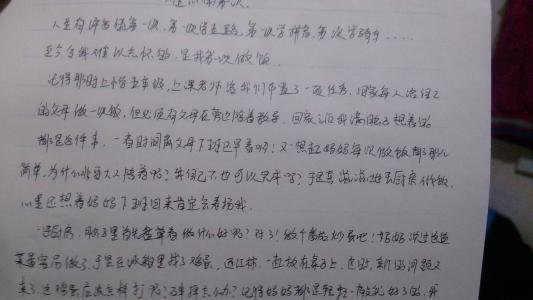 难忘的第一次
人生有许多值第一次，第一次学走路，第一次学拼音，第一次学骑车.....
至今令我难以忘怀的，是我第一次做饭。
记得那时上小学五年级，上课老师给我们布置了一项任务，回家每人给自己
的父母做一次饭，但必须有父母在旁边陪着指导。回家之后我满脑子想着的
都是这件事，一看时间离父母下班还早着呢！又一想起妈妈每次做饭都那么
简单，为什么非要大人陪着呢？我自己不也可以完成吗？于是我溜进去厨房做饭，
心里还想着妈妈下班回来肯定会表扬我。
一进厨房，我心里首先盘算着做什么好呢？对了！做个番茄炒鸡蛋吧！妈妈说过这道
菜最容易做了，于是在冰箱里找了鸡蛋、西红柿，一起放在桌子上，这时，新的问题又
来了，这鸡蛋应该怎样打呢？怎样去办？记得妈妈都是轻轻一敲就好了的，开